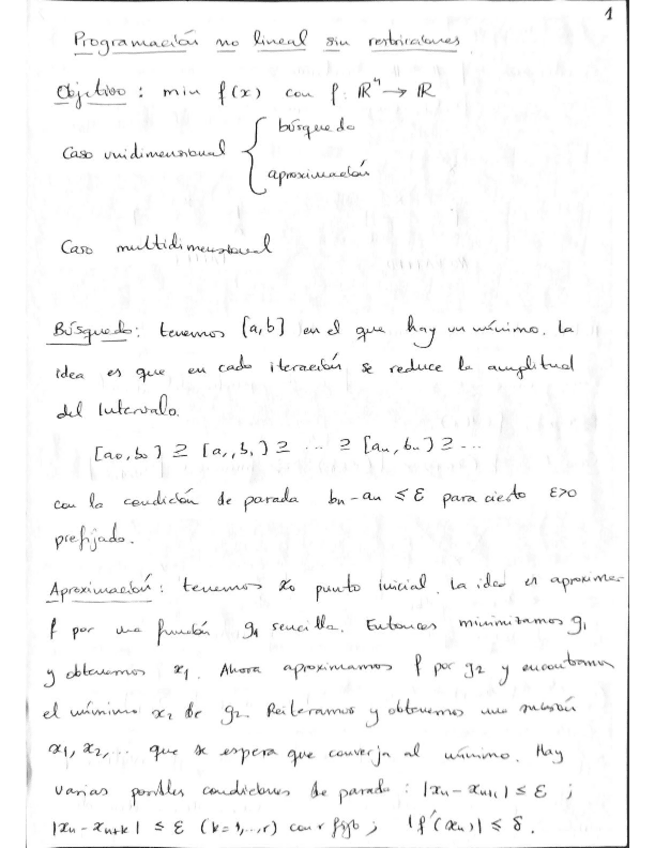 1
Programación no lineal sin restricciones
Objetivo: min f(x) con f: ℝⁿ → ℝ
Caso unidimensional { búsqueda
aproximación
Caso multidimensional
Búsqueda: tenemos [a,b] en el que hay un mínimo. La
idea es que en cada iteración se reduce la amplitud
del intervalo.
[a₀, b₀] ⊇ [a₁, b₁] ⊇ ... ⊇ [aₙ, bₙ] ⊇ ...
con la condición de parada bₙ - aₙ ≤ ε para cierto ε>0
prefijado.
Aproximación: tenemos x₀ punto inicial. La idea es aproximar
f por una función g₁ sencilla. Entonces minimizamos g₁
y obtenemos x₁. Ahora aproximamos f por g₂ y encontramos
el mínimo x₂ de g₂. Reiteramos y obtenemos una sucesión
x₁, x₂, ... que se espera que converja al mínimo. Hay
varias posibles condiciones de parada: |xₙ - xₙ₊₁| ≤ ε ;
|xₙ - xₙ₊ₖ| ≤ ε (k=1,...,r) con r fijo ; |f'(xₙ)| ≤ δ.